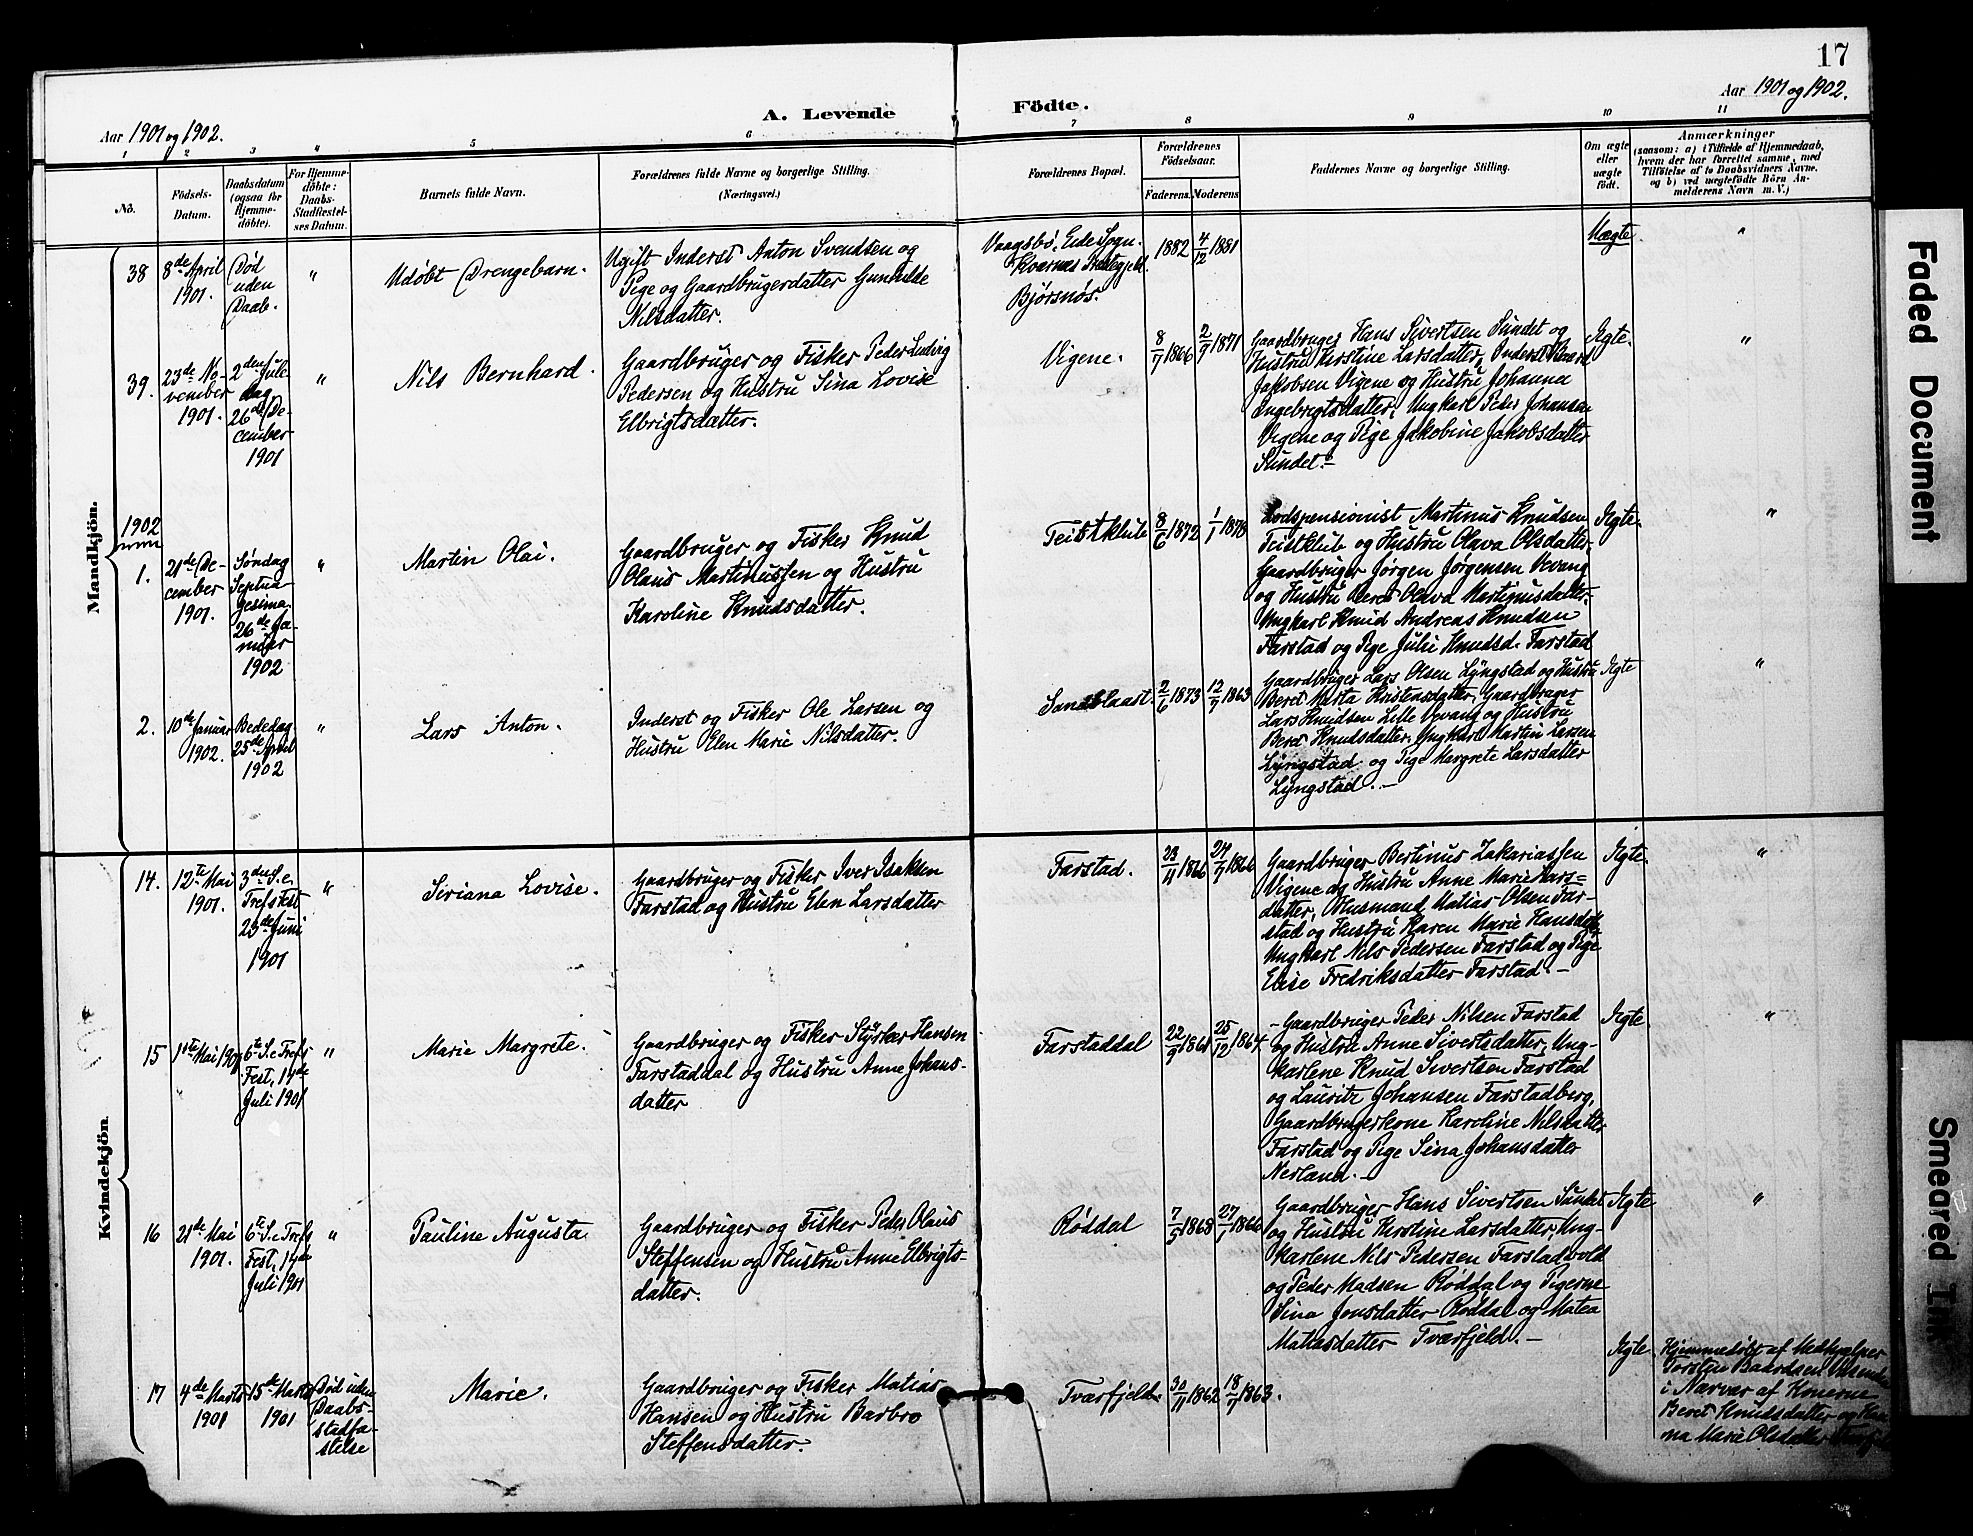 17
Aar 1901 og 1902.
A. Levende Födte.
Aar 1901 og 1902.
1 2 3 4 5 6 7 8 9 10 11
No.
Födsels-
Datum.
Daabsdatum
(ogsaa for
Hjemme-
döbte).
For Hjemme-
döbte:
Daabs-
Stadfæstel-
ses Datum.
Barnets fulde Navn.
Forældrenes fulde Navne og borgerlige Stilling.
(Næringsvei.)
Forældrenes Bopæl.
Forældrenes
Födselsaar.
Faderens. Moderens.
Faddernes Navne og borgerlige Stilling.
Om ægte
eller
uægte
født.
Anmærkninger
(saasom: a) i Tilfælde af Hjemmedaab,
hvem der har forrettet samme, med
Tilföielse af to Daabsvidners Navne.
og b) ved uægtefödte Börn An-
melderens Navn m. V.)
Mandkjön.
38
8de April
1901.
Død
uden
Daab.
"
Udøbt Drengebarn.
Ugift Inderst Anton Svendsen og
Pige og Gaardbrugerdatter Gunhilde
Nilsdatter.
Vaagsbö, Eide Sogn.
Kvernes Prestegjeld.
Bjørsnös.
1882
4/12 1881
Uægte.
"
39.
23de No-
vember
1901.
2den Jule-
dag,
26de De-
cember
1901
"
Nils Bernhard.
Gaardbruger og Fisker Peder Ludvig
Pedersen og Hustru Sina Lovise
Elbrigtsdatter.
Vigene.
8/7 1866
2/7 1871
Gaardbruger Hans Sivertsen Sundet og
Hustru Kirstine Larsdatter, Inderst Baard
Jakobsen Vigene og Hustru Johanna
Ingebrigtsdatter, Ungkarl Peder Johansen
Vigene og Pige Jakobine Jakobsdatter
Sundet.-
Ægte.
"
1902
1.
21de De-
cember
1901.
Søndag
Septua-
gesima
26de Ja-
nuar
1902
"
Martin Olai.
Gaardbruger og Fisker Knud
Olaus Martinussen og Hustru
Karoline Knudsdatter.
Teistklub
8/6 1872
1/1 1878
Lodspensionist Martinus Knudsen
Teistklub og Hustru Olava Olsdatter,
Gaardbruger Jørgen Jørgensen Vevang
og Hustru Beret Olava Martinusdatter,
Ungkarl Knud Andreas Knudsen
Farstad og Pige Julie Knudsd. Farstad
Ægte.
"
2.
10de Januar
1902.
Bededag
25de April
1902
"
Lars Anton.
Inderst og Fisker Ole Larsen og
Hustru Elen Marie Nilsdatter.
Sandblaast.
2/6 1873
12/7 1863
Gaardbruger Lars Olsen Lyngstad og Hustru
Beret Marta Kristensdatter, Gaardbruger
Lars Knudsen Lille Vevang og Hustru
Beret Knudsdatter, Ungkarl Martin Larsen
Lyngstad og Pige Margrete Larsdatter
Lyngstad.-
Ægte
"
Kvindekjön.
14.
12te Mai
1901.
3die S. e.
Trefs Fest
23de Juni
1901
"
Seriana Lovise.
Gaardbruger og Fisker Iver Isaksen
Farstad og Hustru Elen Larsdatter
Farstad.
23/11 1866
27/7 1866
Gaardbruger Bertinus Zakariassen
Vigene og Hustru Anne Marie Lars=
datter, Husmand Matias Olsen Far-
stad og Hustru Karen Marie Hansdatter,
Ungkarl Nils Pedersen Farstad og Pige
Elise Fredriksdatter Farstad.-
Ægte.
"
15
11te Mai 1901
6te S. e. Trefs
Fest, 14de
Juli 1901
"
Marie Margrete.
Gaardbruger og Fisker Styrker Hansen
Farstaddal og Hustru Anne Johans-
datter
Farstaddal
22/9 1861
25/12 1864
- Gaardbruger Peder Nilsen Farstad
og Hustru Anne Sivertsdatter, Ung-
karlene Knud Sivertsen Farstad
og Lauritz Johansen Farstadberg,
Gaardbrugerkone Karoline Nilsdatter
Farstad og Pige Sina Johansdatter
Nerland.-
Ægte
"
16
21de Mai
1901.
6te S. e. Trefs
Fest, 14de
Juli 1901
"
Pauline Augusta.
Gaardbruger og Fisker Peder Olaus
Steffensen og Hustru Anne Elbrigts-
datter.
Røddal
7/5 1868
27/1 1866
Gaardbruger Hans Sivertsen Sundet
og Hustru Kirstine Larsdatter, Ung-
karlene Nils Pedersen Farstadvold
og Peder Madsen Røddal og Pigerne
Sina Jonsdatter Røddal og Matea
Matiasdatter Tværfjeld.-
Ægte
"
17
4de Marts
1901
15de Marts
1901
Død uden
Daabs-
stadfæ-
stelse
Marie.
Gaardbruger og Fisker Matias
Hansen og Hustru Barbro
Steffensdatter.
Tværfjeld.
30/11 1862
18/7 1863.
Ægte
Hjemmedøbt af Medhjælper
Torsten Baardsen
i Nærvær af Konerne
Beret Knudsdatter og Han-
na Marie Olsdatter
Faded Document
Smeared Ink